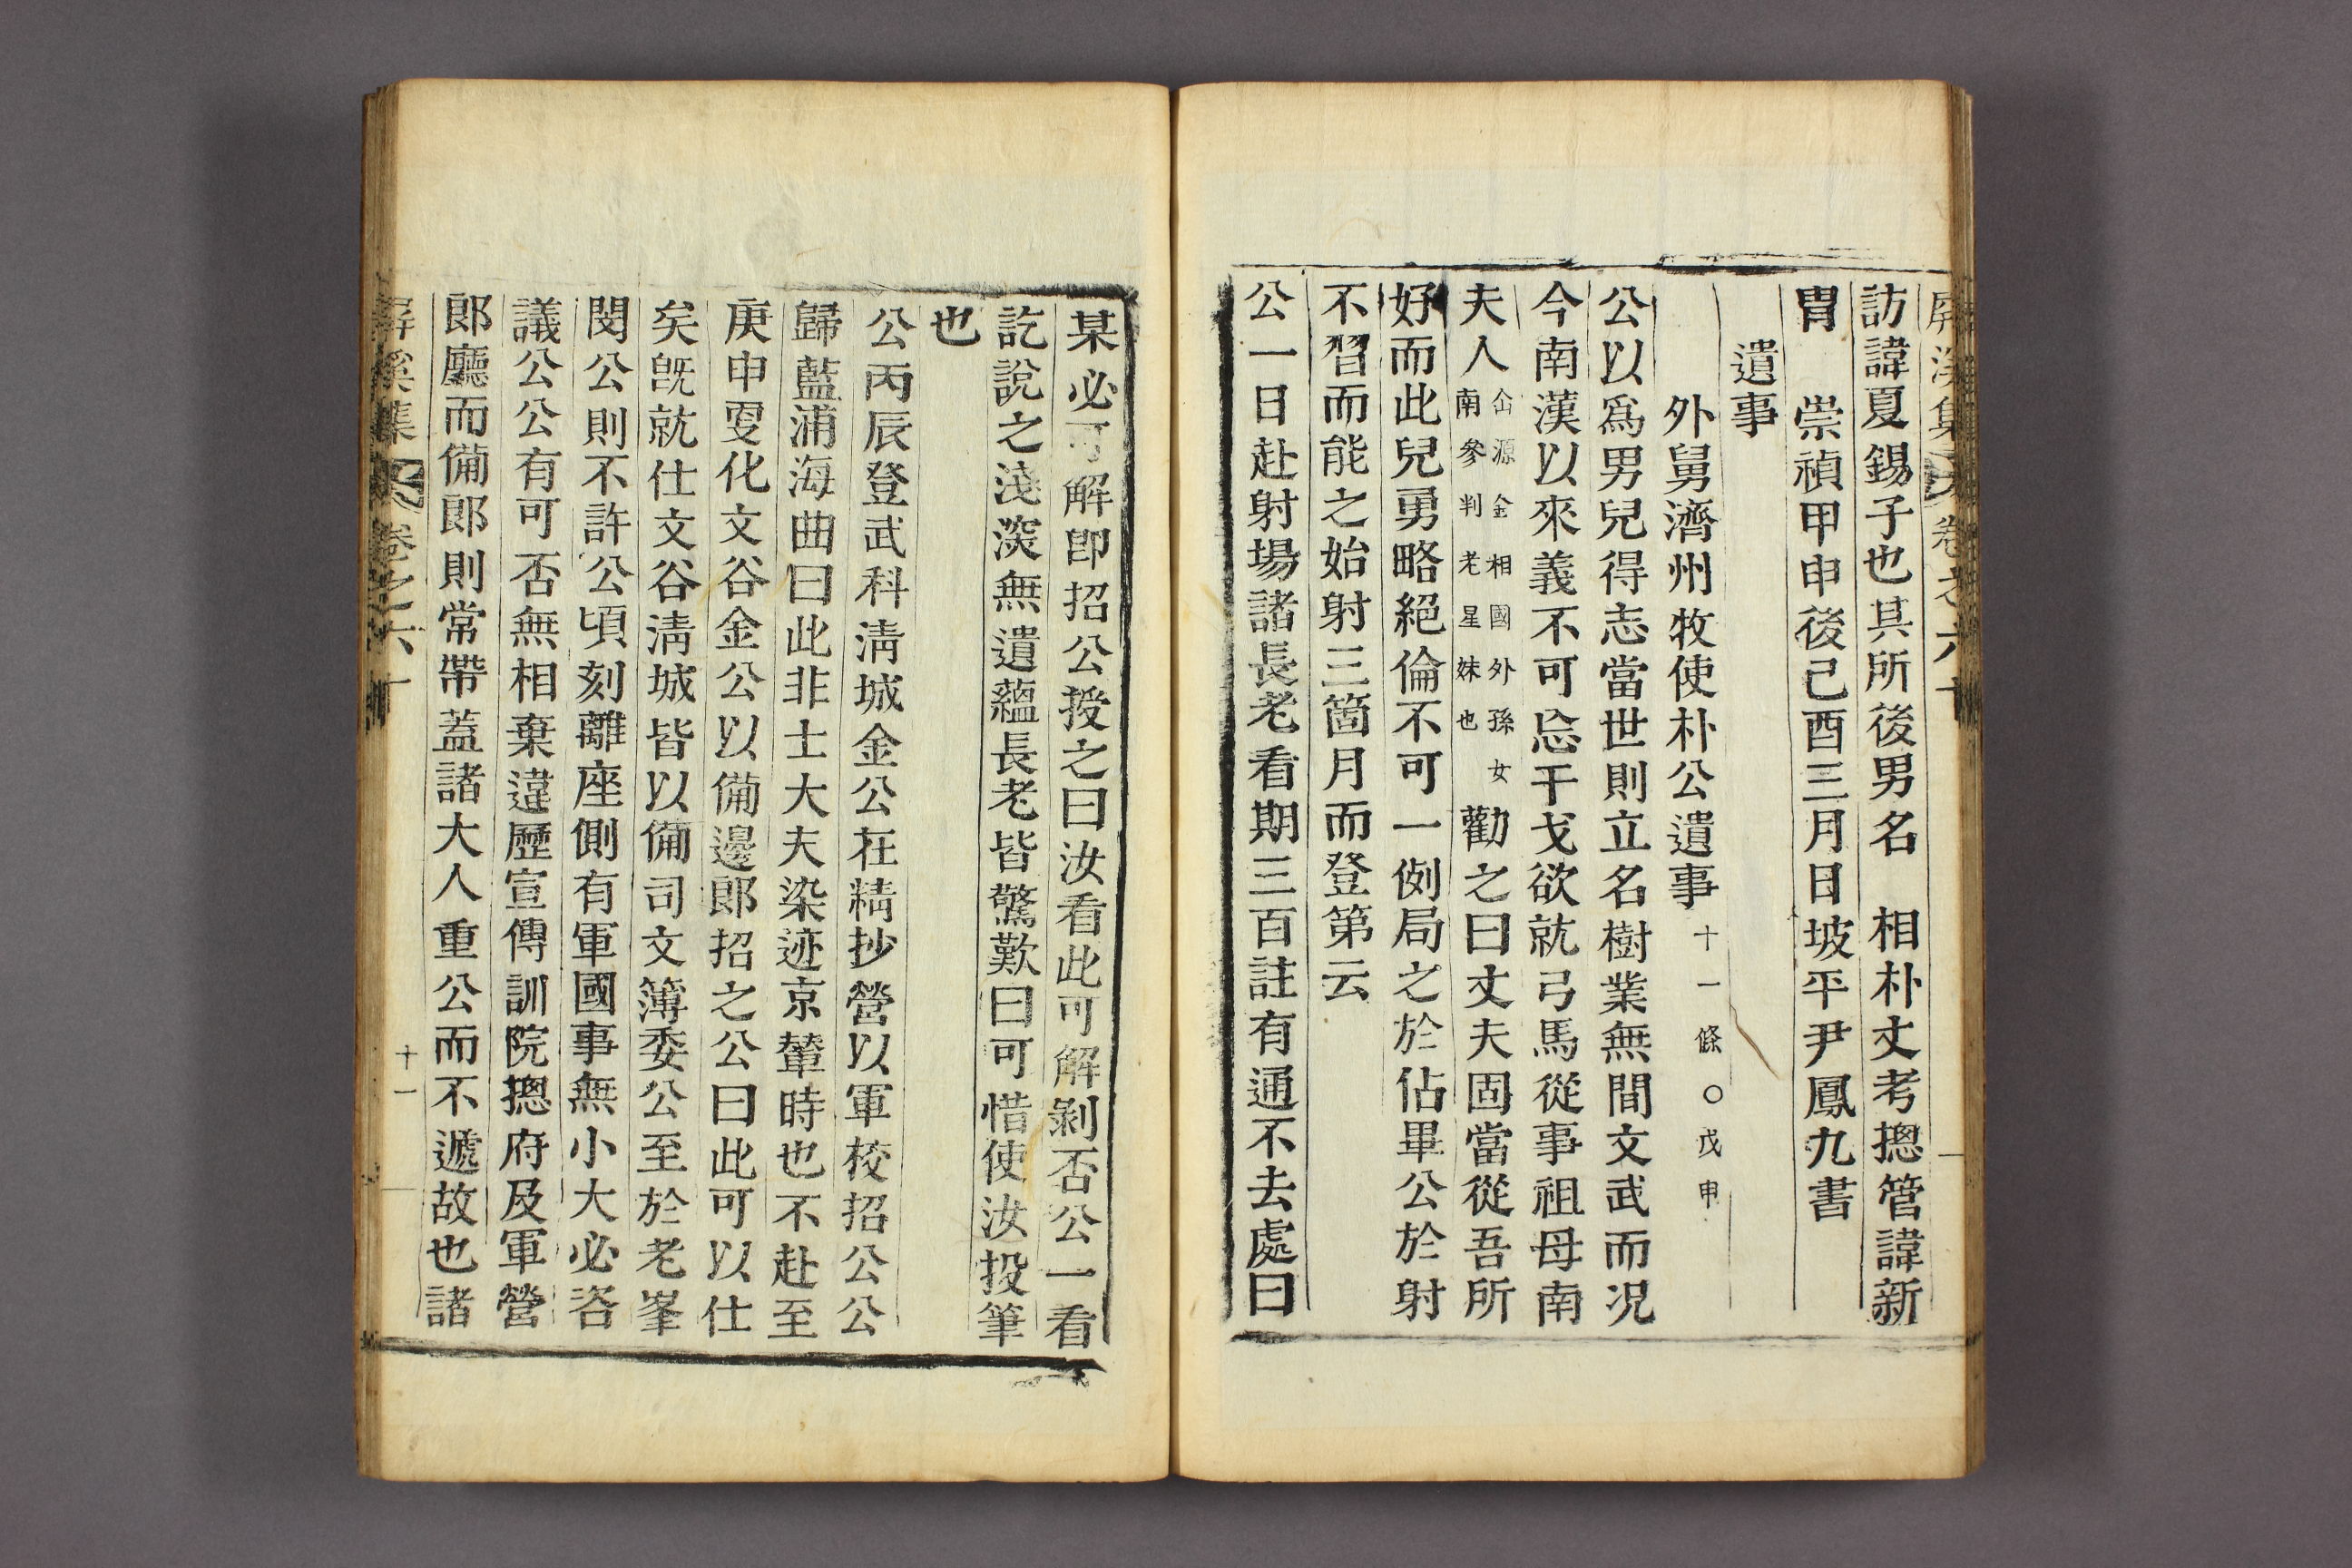 屛溪集 卷之六十
訪諱夏錫子也其所後男名 相朴丈考摠管諱新
胄 崇禎甲申後己酉三月日坡平尹鳳九書
遺事
外舅濟州牧使朴公遺事十一條○戊申
公以爲男兒得志當世則立名樹業無間文武而况
今南漢以來義不可忘干戈欲就弓馬從事祖母南
夫人仚源金相國外孫女南參判老星妹也勸之曰丈夫固當從吾所
好而此兒勇略絕倫不可一例局之於佔畢公於射
不習而能之始射三箇月而登第云
公一日赴射場諸長老看期三百註有通不去處曰
某必可解卽招公授之曰汝看此可解剝否公一看
訖說之淺深無遺蘊長老皆驚歎曰可惜使汝投筆
也
公丙辰登武科淸城金公在精抄營以軍校招公公
歸藍浦海曲曰此非士大夫染迹京輦時也不赴至
庚申更化文谷金公以備邊郎招之公曰此可以仕
矣旣就仕文谷淸城皆以備司文簿委公至於老峯
閔公則不許公頃刻離座側有軍國事無小大必咨
議公公有可否無相棄違歷宣傳訓院摠府及軍營
郎廳而備郎則常帶蓋諸大人重公而不遞故也諸
屛溪集 卷之六十
十一